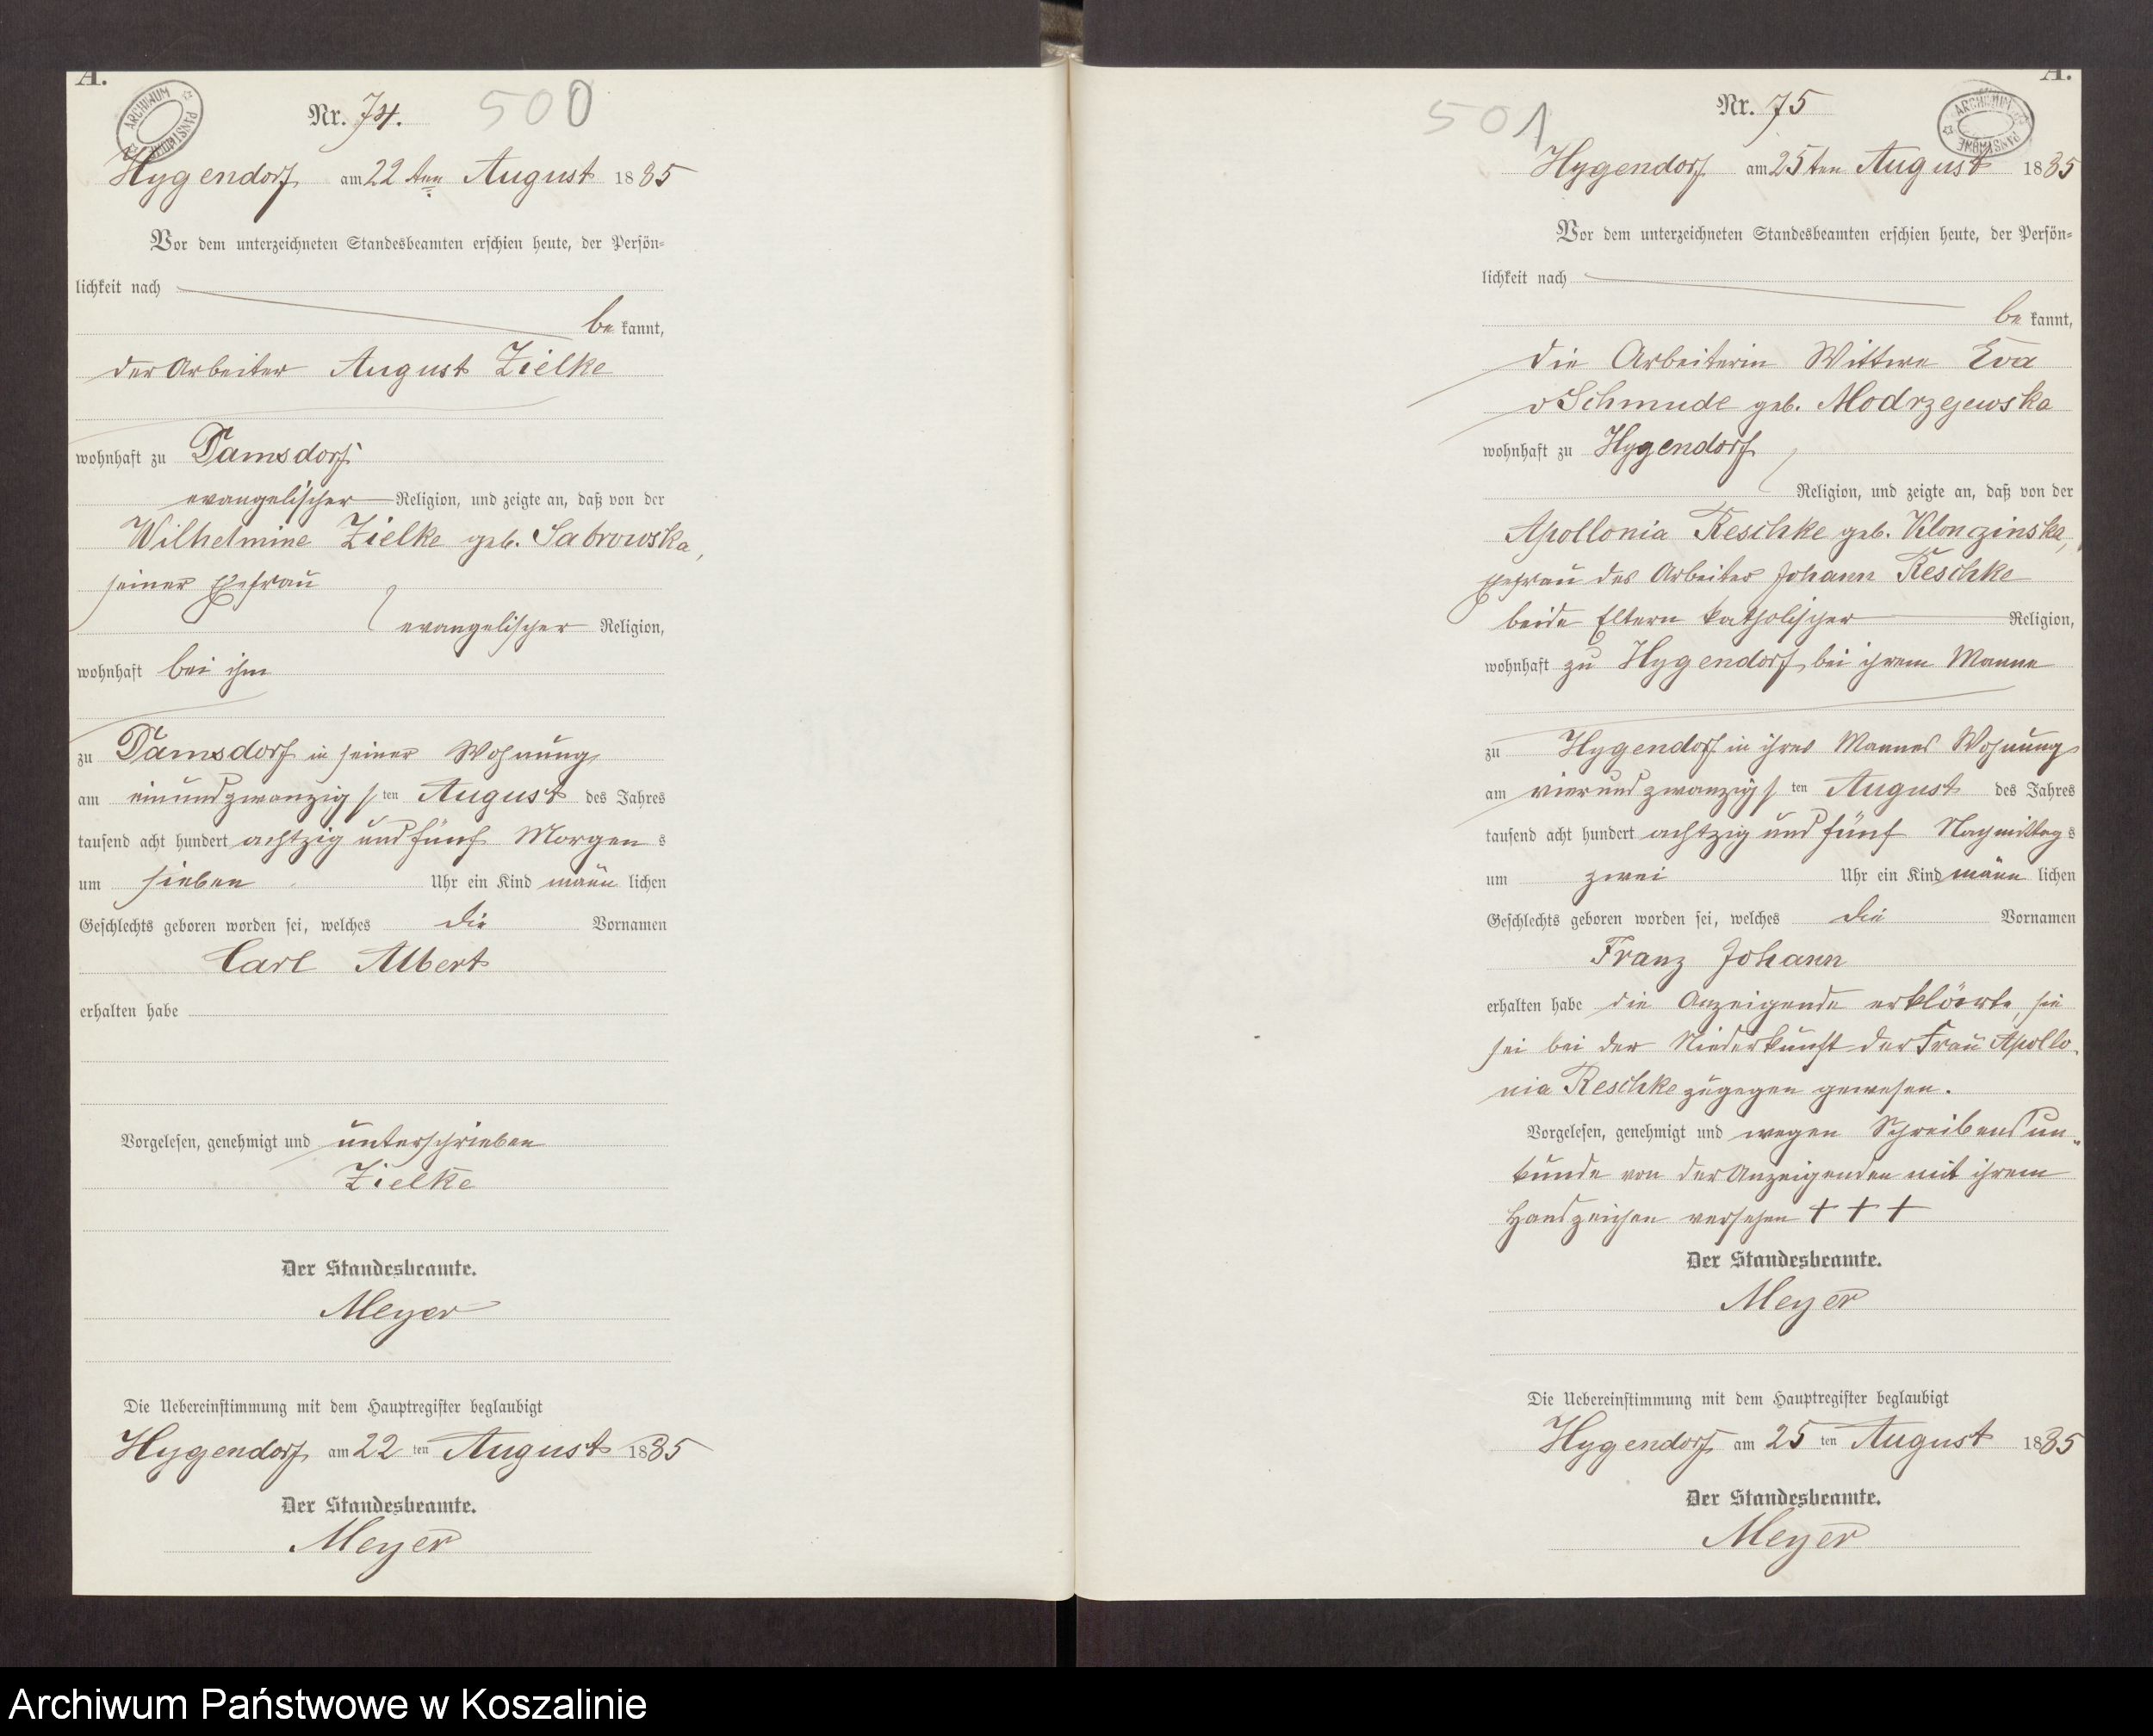 A.
ARCHIWUM PAŃSTWOWE
Nr. 74.
500
Hygendorf am 22 ten August 1885
Vor dem unterzeichneten Standesbeamten erschien heute, der Persön-
lichkeit nach
be kannt,
der Arbeiter August Zielke
wohnhaft zu Damsdorf
evangelischer Religion, und zeigte an, daß von der
Wilhelmine Zielke geb. Sabrowska,
seiner Ehefrau
evangelischer Religion,
wohnhaft bei ihm
zu Damsdorf in seiner Wohnung
am einundzwanzigsten August des Jahres
tausend acht hundert achtzig und fünf Morgens
um sieben Uhr ein Kind männlichen
Geschlechts geboren worden sei, welches die Vornamen
Carl Albert
erhalten habe
Vorgelesen, genehmigt und unterschrieben
Zielke
Der Standesbeamte.
Meyer
Die Uebereinstimmung mit dem Hauptregister beglaubigt
Hygendorf am 22 ten August 1885
Der Standesbeamte.
Meyer
A.
ARCHIWUM PAŃSTWOWE
Nr. 75
501
Hygendorf am 25 ten August 1885
Vor dem unterzeichneten Standesbeamten erschien heute, der Persön-
lichkeit nach
be kannt,
die Arbeiterin Wittwe Eva
v Schmude geb. Modrzejewska
wohnhaft zu Hygendorf
Religion, und zeigte an, daß von der
Apollonia Reschke geb. Klonczinska,
Ehefrau des Arbeiter Johann Reschke
beide Eltern katholischer Religion,
wohnhaft zu Hygendorf bei ihrem Manne
zu Hygendorf in ihres Mannes Wohnung
am vierundzwanzigsten August des Jahres
tausend acht hundert achtzig und fünf Nachmittags
um zwei Uhr ein Kind männlichen
Geschlechts geboren worden sei, welches die Vornamen
Franz Johann
erhalten habe die Anzeigende erklärte, sie
sei bei der Niederkunft der Frau Apollo-
nia Reschke zugegen gewesen.
Vorgelesen, genehmigt und wegen Schreibensun-
kunde von der Anzeigenden mit ihrem
Handzeichen versehen + + +
Der Standesbeamte.
Meyer
Die Uebereinstimmung mit dem Hauptregister beglaubigt
Hygendorf am 25 ten August 1885
Der Standesbeamte.
Meyer
Archiwum Państwowe w Koszalinie